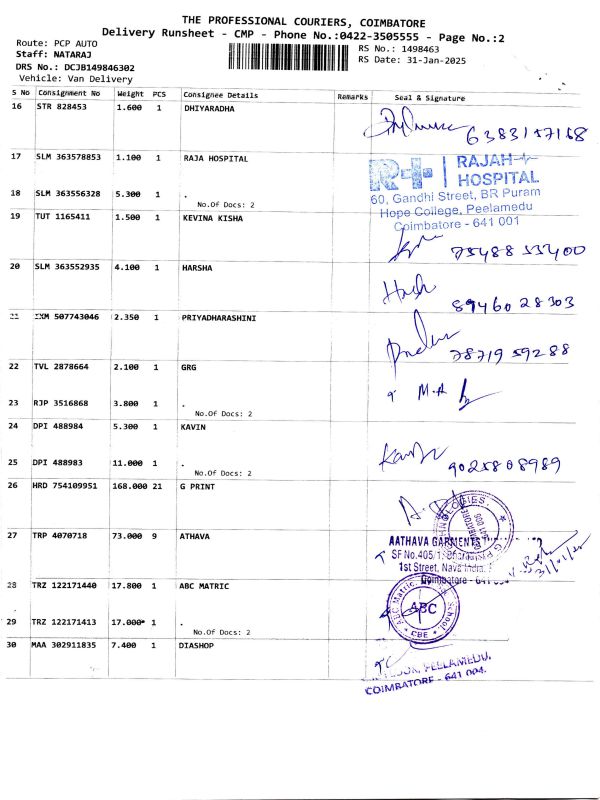 THE PROFESSIONAL COURIERS, COIMBATORE
Delivery Runsheet - CMP - Phone No.:0422-3505555 - Page No.:2
Route: PCP AUTO
Staff: NATARAJ
DRS No.: DCJB149846302
Vehicle: Van Delivery
RS No.: 1498463
RS Date: 31-Jan-2025
S No Consignment No Weight PCS Consignee Details Remarks Seal & Signature
16 STR 828453 1.600 1 DHIYARADHA
6383157168
17 SLM 363578853 1.100 1 RAJA HOSPITAL
R+ RAJAH HOSPITAL
60, Gandhi Street, BR Puram
Hope College, Peelamedu
Coimbatore - 641 001
18 SLM 363556328 5.300 1 .
No.Of Docs: 2
19 TUT 1165411 1.500 1 KEVINA KISHA
75488 55400
20 SLM 363552935 4.100 1 HARSHA
89460 28303
21 IXM 507743046 2.350 1 PRIYADHARASHINI
78719 59288
22 TVL 2878664 2.100 1 GRG
M.A
23 RJP 3516868 3.800 1 .
No.Of Docs: 2
24 DPI 488984 5.300 1 KAVIN
9025808989
25 DPI 488983 11.000 1 .
No.Of Docs: 2
26 HRD 754109951 168.000 21 G PRINT
27 TRP 4070718 73.000 9 ATHAVA
AATHAVA GARMENTS
SF No.405/1
1st Street, Nava India
Coimbatore - 641
31/01/25
28 TRZ 122171440 17.800 1 ABC MATRIC
ABC Matric. School
ABC
CBE
29 TRZ 122171413 17.000* 1 .
No.Of Docs: 2
30 MAA 302911835 7.400 1 DIASHOP
PEELAMEDU,
COIMBATORE - 641 004.